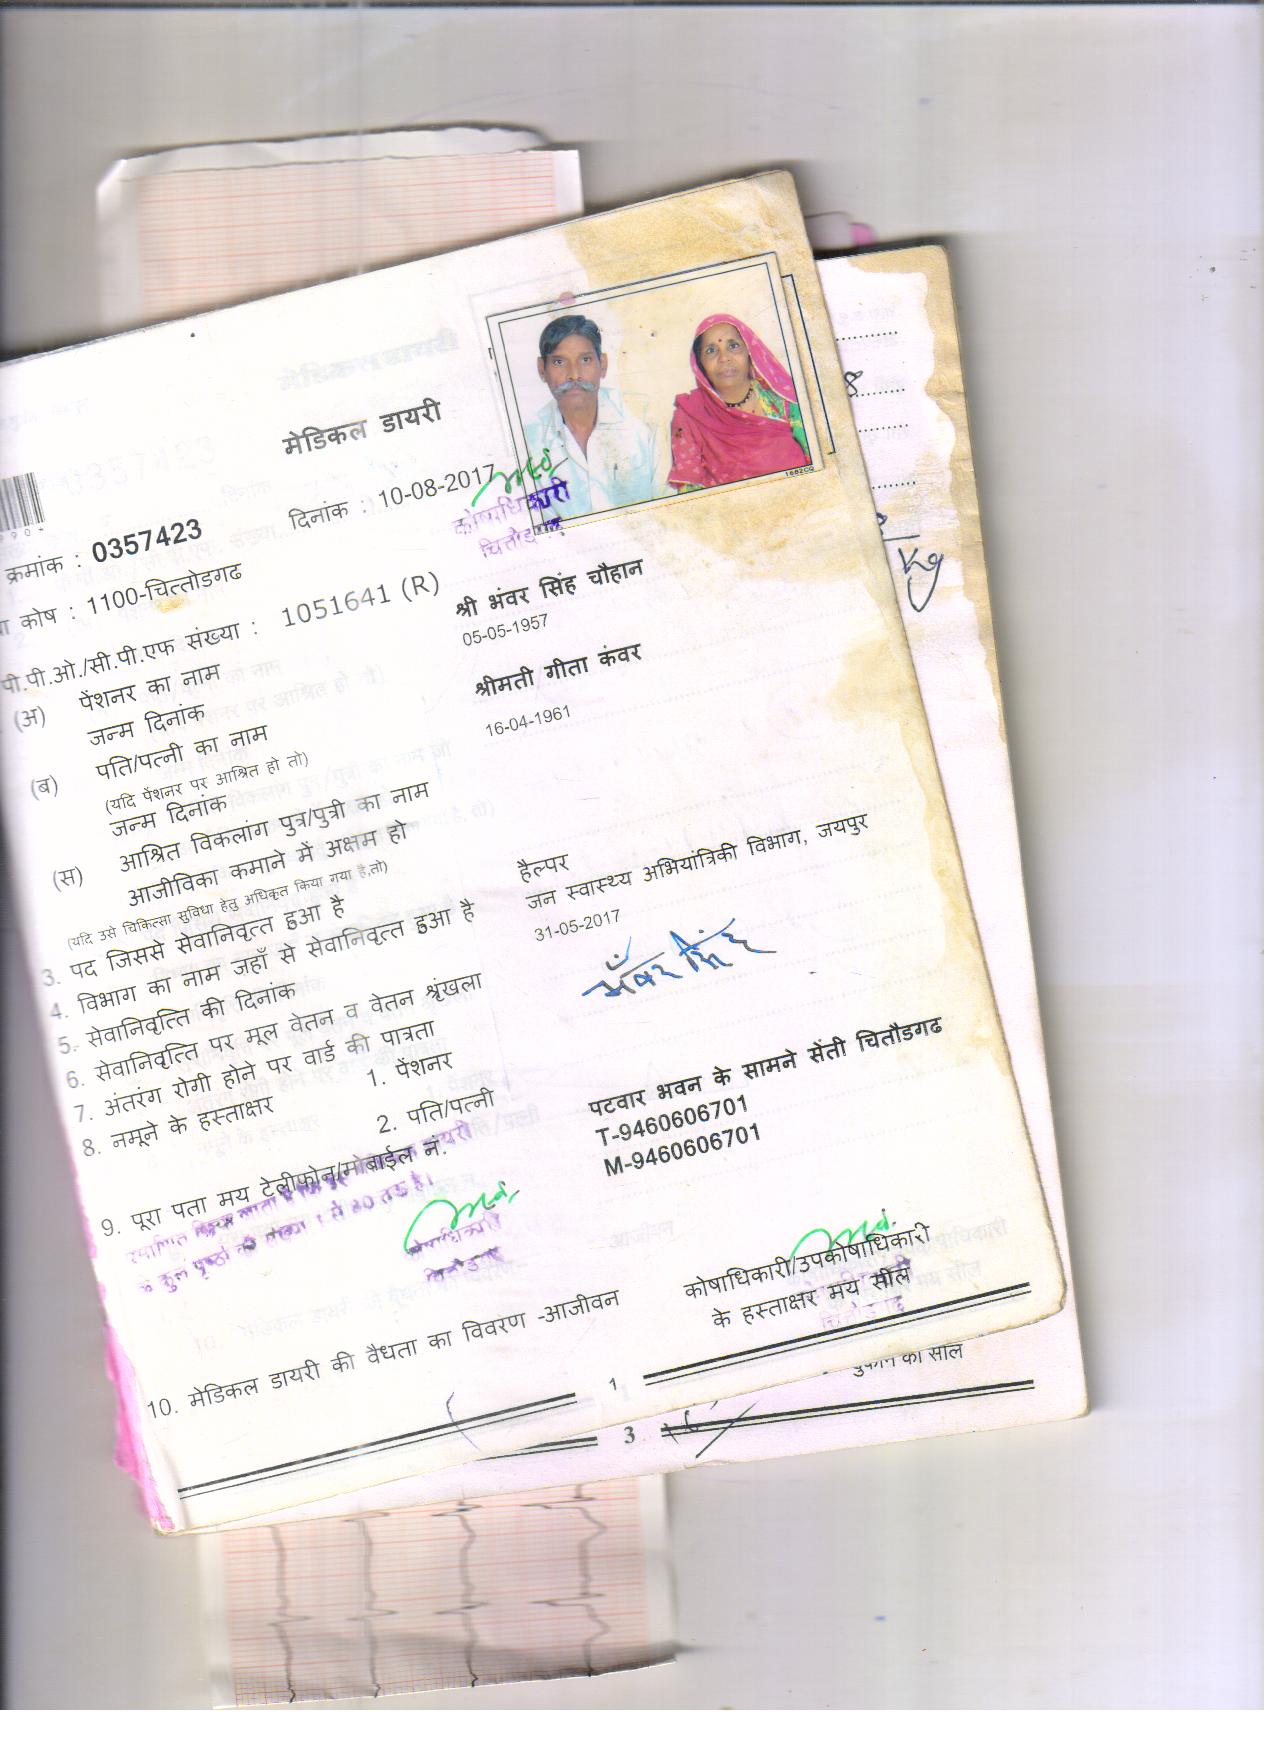 मेडिकल डायरी
क्रमांक : 0357423
दिनांक : 10-08-2017
कोषाधिकारी
चित्तोड़गढ़
कोष : 1100-चित्तोडगढ
पी.पी.ओ./सी.पी.एफ संख्या : 1051641 (R)
(अ) पेंशनर का नाम श्री भंवर सिंह चौहान
जन्म दिनांक 05-05-1957
(ब) पति/पत्नी का नाम श्रीमती गीता कंवर
(यदि पेंशनर पर आश्रित हो तो)
जन्म दिनांक 16-04-1961
(स) आश्रित विकलांग पुत्र/पुत्री का नाम
आजीविका कमाने में अक्षम हो
(यदि उसे चिकित्सा सुविधा हेतु अधिकृत किया गया है,तो)
3. पद जिससे सेवानिवृत्त हुआ है हैल्पर
4. विभाग का नाम जहाँ से सेवानिवृत्त हुआ है जन स्वास्थ्य अभियांत्रिकी विभाग, जयपुर
5. सेवानिवृत्ति की दिनांक 31-05-2017
6. सेवानिवृत्ति पर मूल वेतन व वेतन श्रृंखला
7. अंतरंग रोगी होने पर वार्ड की पात्रता
8. नमूने के हस्ताक्षर 1. पेंशनर भँवर सिंह
2. पति/पत्नी
9. पूरा पता मय टेलीफोन/मोबाईल नं. पटवार भवन के सामने सेंती चितौडगढ
T-9460606701
M-9460606701
कोषाधिकारी
कोषाधिकारी/उपकोषाधिकारी
के हस्ताक्षर मय सील
10. मेडिकल डायरी की वैधता का विवरण -आजीवन
1
का सील
3
8
Kg
1682CG